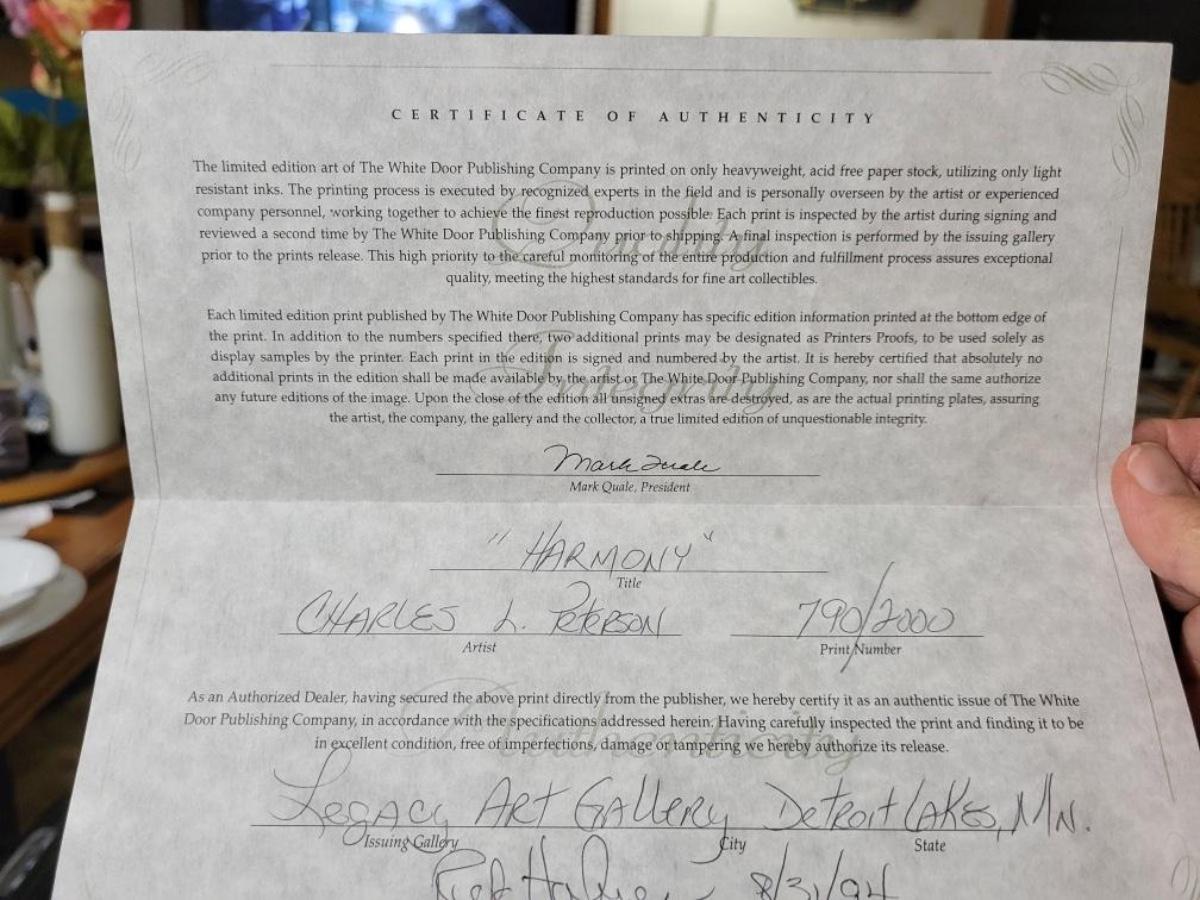 CERTIFICATE OF AUTHENTICITY
The limited edition art of The White Door Publishing Company is printed on only heavyweight, acid free paper stock, utilizing only light
resistant inks. The printing process is executed by recognized experts in the field and is personally overseen by the artist or experienced
company personnel, working together to achieve the finest reproduction possible. Each print is inspected by the artist during signing and
reviewed a second time by The White Door Publishing Company prior to shipping. A final inspection is performed by the issuing gallery
prior to the prints release. This high priority to the careful monitoring of the entire production and fulfillment process assures exceptional
quality, meeting the highest standards for fine art collectibles.
Quality
Each limited edition print published by The White Door Publishing Company has specific edition information printed at the bottom edge of
the print. In addition to the numbers specified there, two additional prints may be designated as Printers Proofs, to be used solely as
display samples by the printer. Each print in the edition is signed and numbered by the artist. It is hereby certified that absolutely no
additional prints in the edition shall be made available by the artist or The White Door Publishing Company, nor shall the same authorize
any future editions of the image. Upon the close of the edition all unsigned extras are destroyed, as are the actual printing plates, assuring
the artist, the company, the gallery and the collector, a true limited edition of unquestionable integrity.
Integrity
Mark Quale
Mark Quale, President
"HARMONY"
Title
CHARLES L. PETERSON 790/2000
Artist Print Number
As an Authorized Dealer, having secured the above print directly from the publisher, we hereby certify it as an authentic issue of The White
Door Publishing Company, in accordance with the specifications addressed herein. Having carefully inspected the print and finding it to be
in excellent condition, free of imperfections, damage or tampering we hereby authorize its release.
Authenticity
Legacy Art Gallery Detroit Lakes, MN.
Issuing Gallery City State
8/31/94